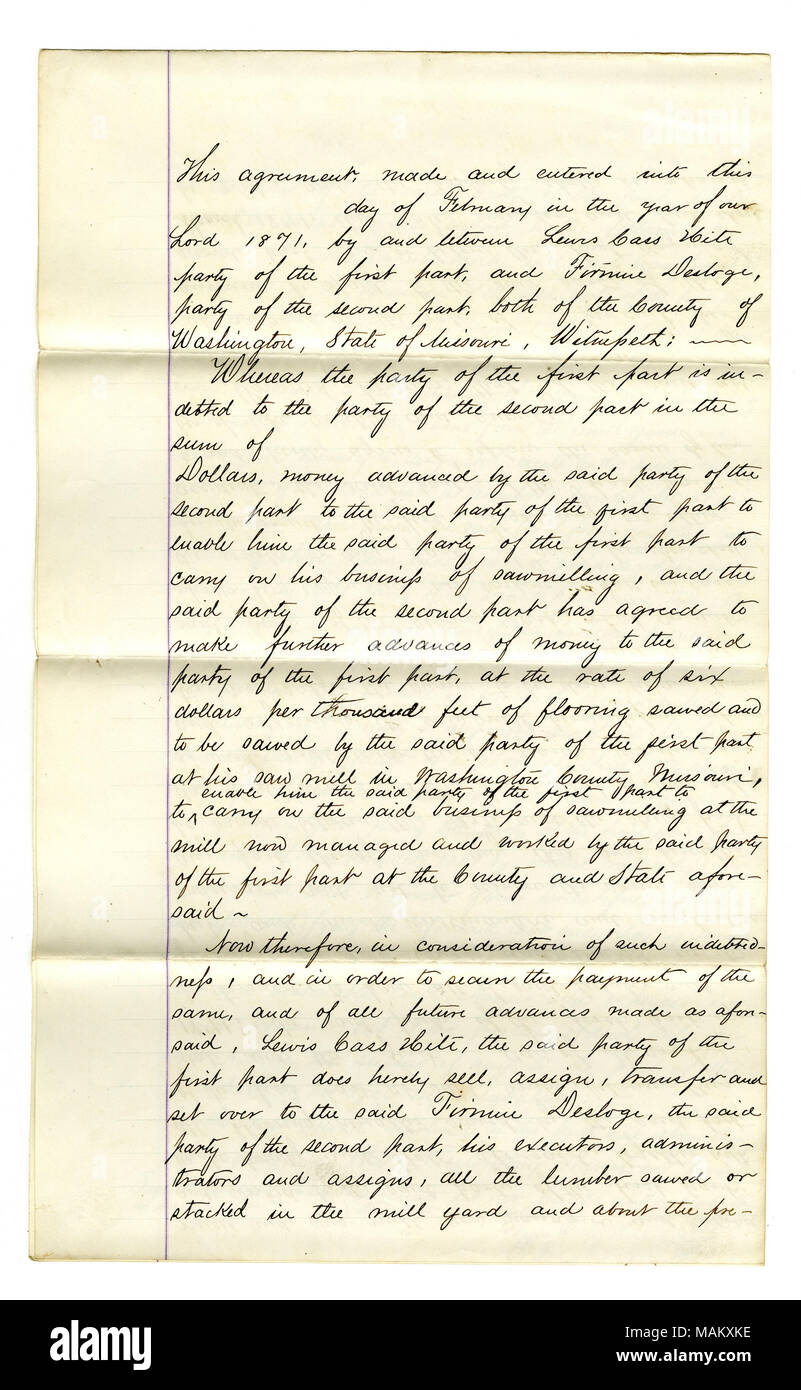 This agreement, made and entered into this
day of February in the year of our
Lord 1871, by and between Lewis Cass Hite
party of the first part, and Firmine Desloge,
party of the second part, both of the County of
Washington, State of Missouri, Witnesseth:
Whereas the party of the first part is in-
debted to the party of the second part in the
sum of
Dollars, money advanced by the said party of the
second part to the said party of the first part to
enable him the said party of the first part to
carry on his business of sawmilling, and the
said party of the second part has agreed to
make further advances of money to the said
party of the first part, at the rate of six
dollars per thousand feet of flooring sawed and
to be sawed by the said party of the first part
at his saw mill in Washington County Missouri,
enable him the said party of the first part to
to ‸ carry on the said business of sawmilling at the
mill now managed and worked by the said party
of the first part at the County and State afore-
said ~
Now therefore, in consideration of such indebted-
ness, and in order to secure the payment of the
same, and of all future advances made as afore-
said, Lewis Cass Hite, the said party of the
first part does hereby sell, assign, transfer and
set over to the said Firmine Desloge, the said
party of the second part, his executors, adminis-
trators and assigns, all the lumber sawed or
stacked in the mill yard and about the pre-
a alamy
Image ID: MAKXKE
www.alamy.com